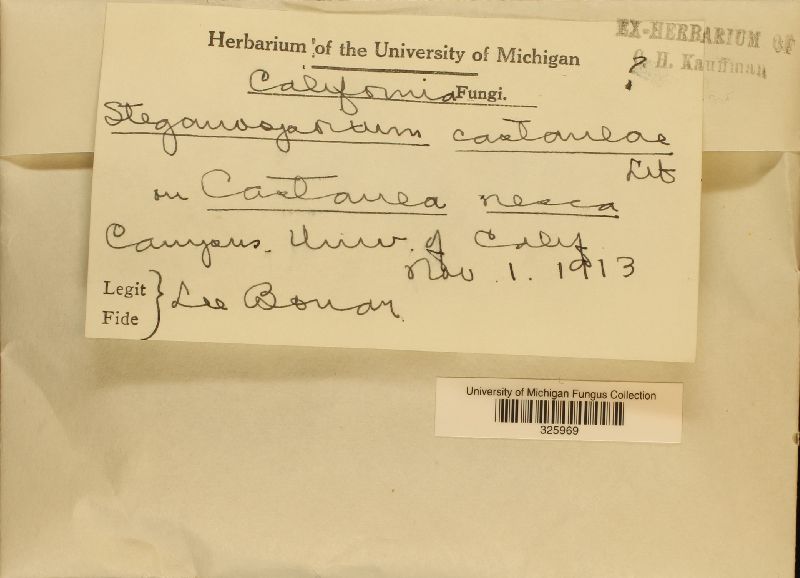 EX-HERBARIUM OF
C. H. Kauffman
Herbarium of the University of Michigan
?
California Fungi.
Steganosporium castaneae
Lib
on Castanea vesca
Campus. Univ. of Calif
Nov 1. 1913
Legit
Fide
Lee Bonar.
University of Michigan Fungus Collection
325969